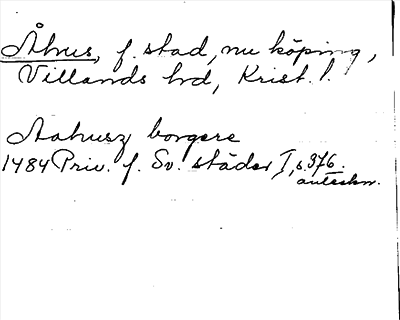 Åhus, f. stad, nu köping,
Villands hd, Krist. l.
Aahusz borgere
1484 Priv. f. Sv. städer I, s. 376.
anteckn.